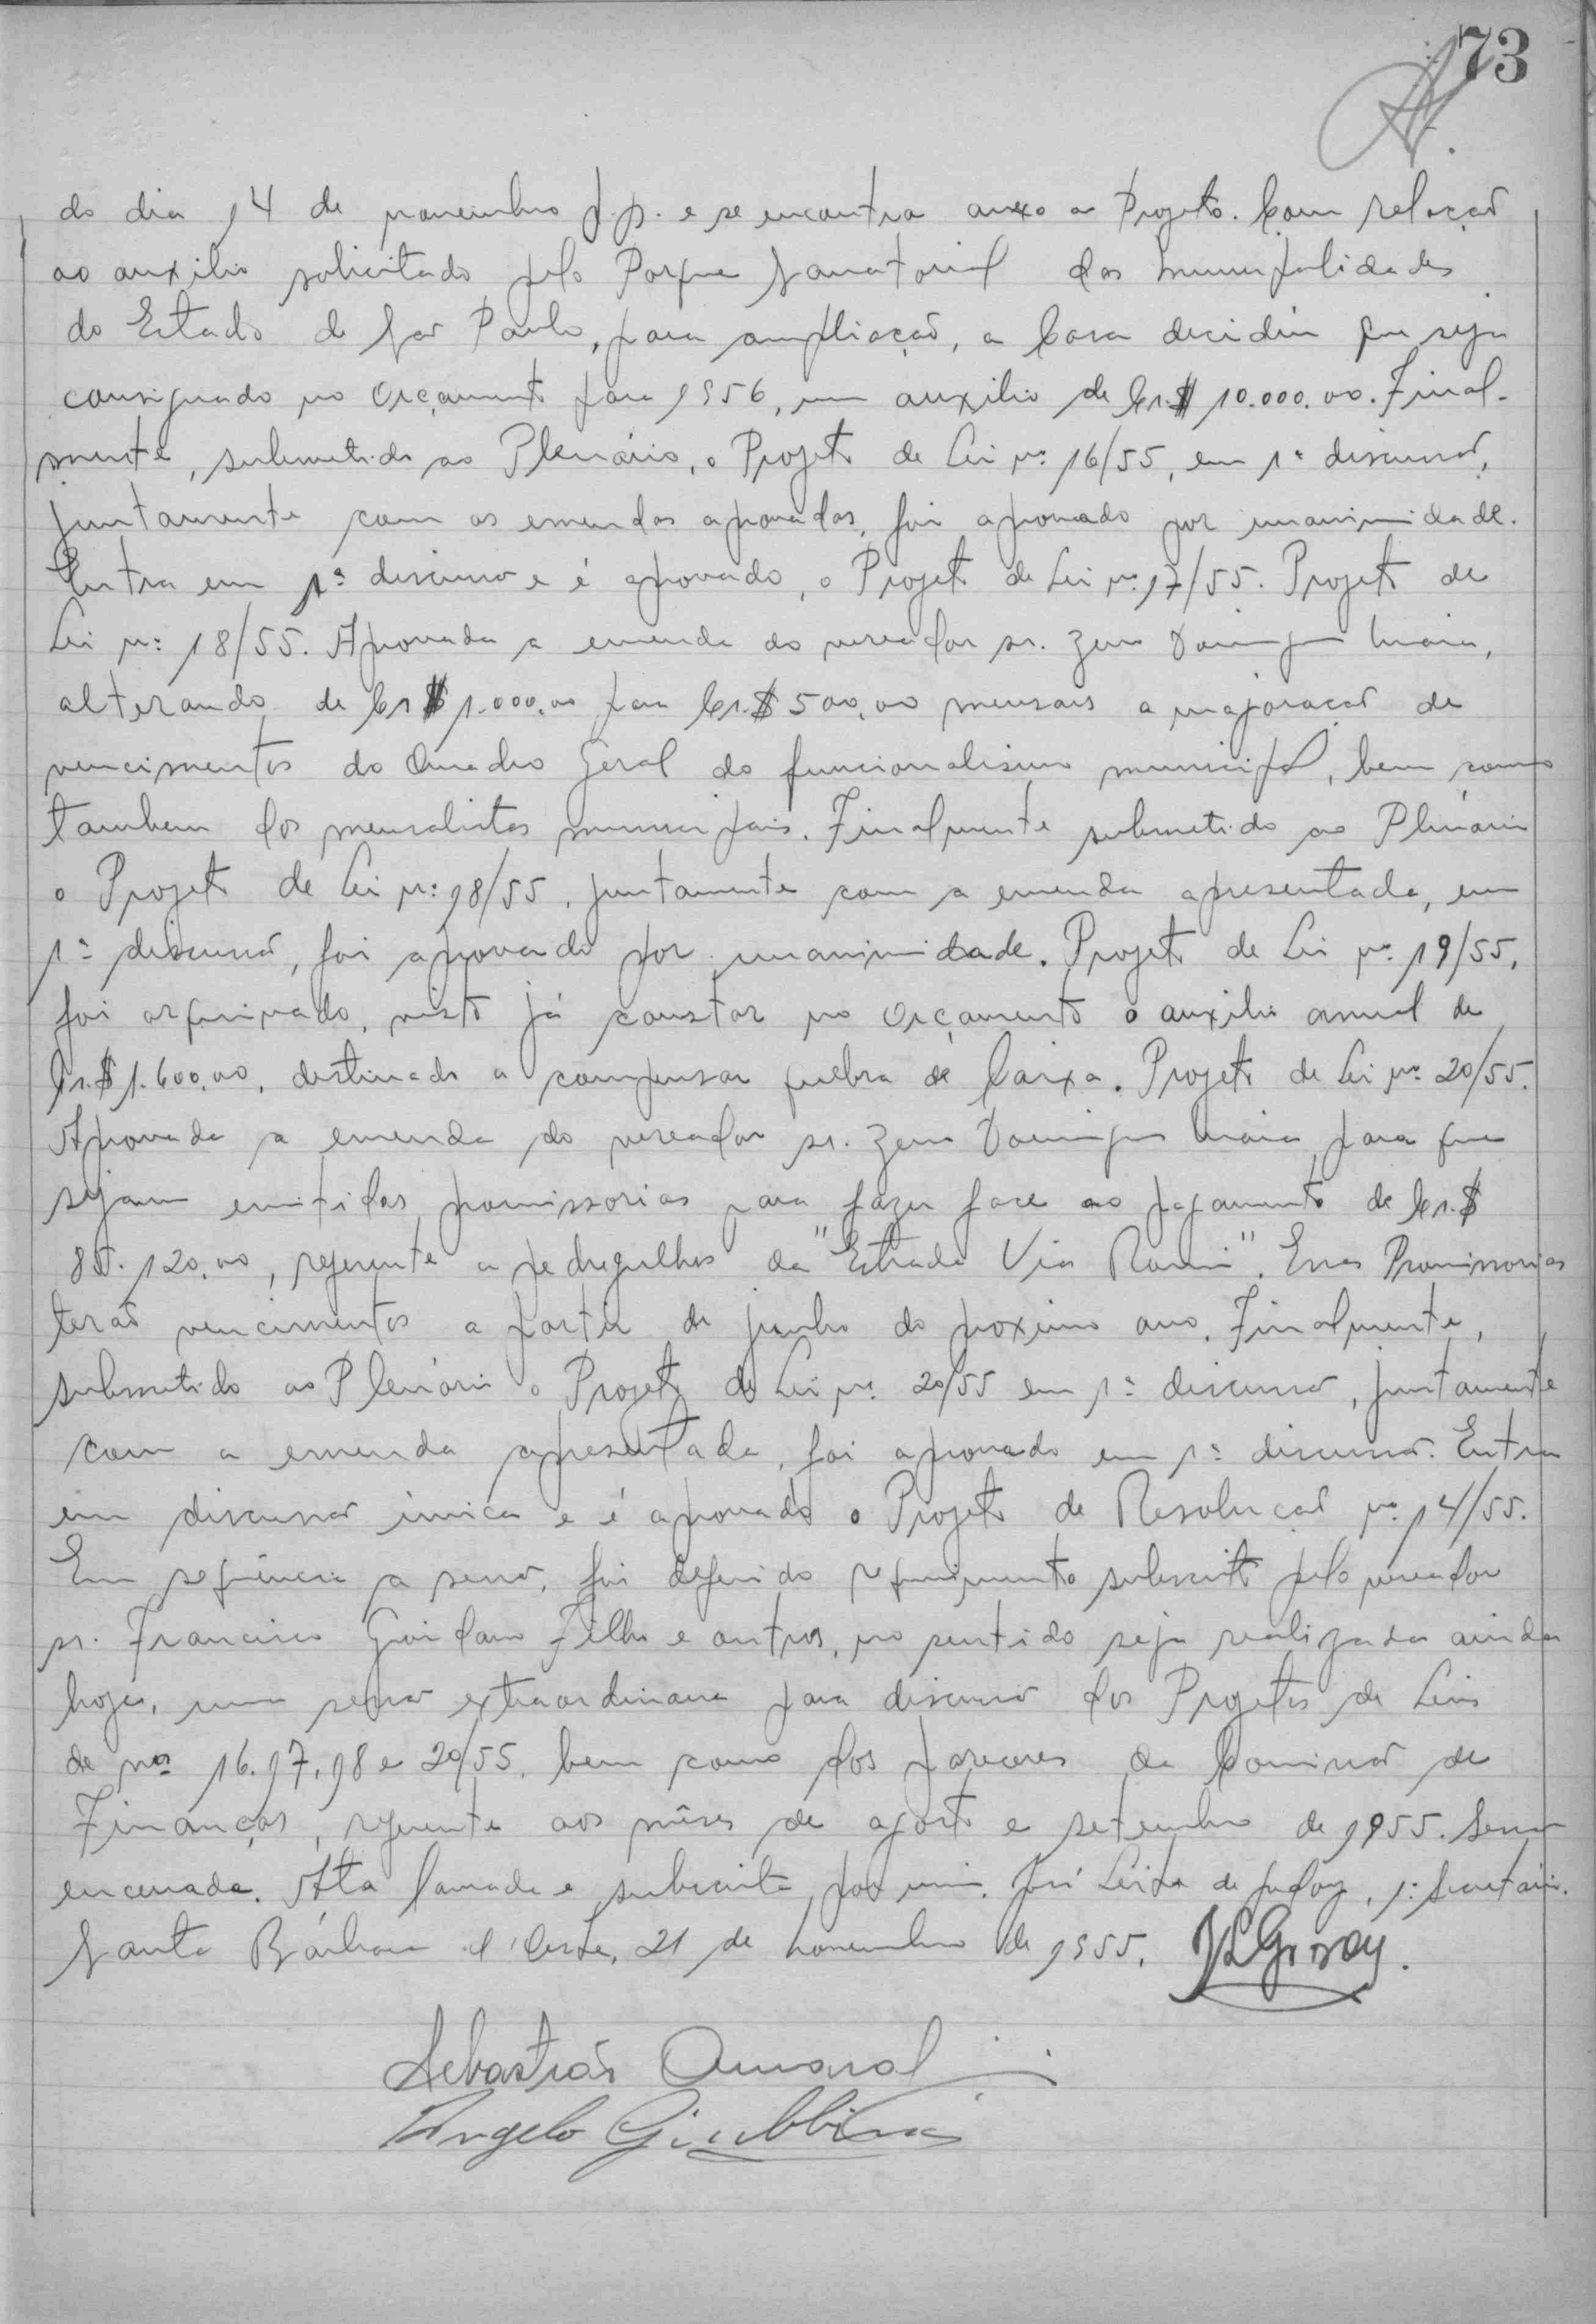 73
do dia 14 de novembro p.p. e se encontra anexo ao Projeto. Com relação
ao auxilio solicitado pelo Parque Sanatorial das Municipalidades
do Estado de São Paulo, para ampliação, a Casa decidiu que seja
consignado no Orçamento para 1956, um auxilio de Cr.$ 10.000,00. Final-
mente, submetido ao Plenário, o Projeto de Lei nº 16/55, em 1ª discussão,
juntamente com as emendas aprovadas, foi aprovado por unanimidade.
Entra em 1ª discussão e é aprovado, o Projeto de Lei nº 17/55. Projeto de
Lei nº 18/55. Aprovada a emenda do vereador sr. Zeno Domingues Maia,
alterando de Cr$ 1.000,00 para Cr.$ 500,00 mensais a majoração de
vencimentos do Quadro Geral do funcionalismo municipal, bem como
tambem dos mensalistas municipais. Finalmente submetido ao Plenário
o Projeto de Lei nº 18/55, juntamente com a emenda apresentada, em
1ª discussão, foi aprovado por unanimidade. Projeto de Lei nº 19/55,
foi arquivado, visto já constar no Orçamento o auxilio anual de
Cr.$ 1.600,00, destinado a compensar quebra de Caixa. Projeto de Lei nº 20/55.
Aprovada a emenda do vereador sr. Zeno Domingues Maia, para que
sejam emitidas promissorias para fazer face ao pagamento de Cr.$
85.120,00, referente a pedregulhos da "Estrada Via Romi". Essas Promissorias
terão vencimentos a partir de junho do proximo ano. Finalmente,
submetido ao Plenário o Projeto de Lei nº 20/55 em 1ª discussão, juntamente
com a emenda apresentada, foi aprovado em 1ª discussão. Entra
em discussão única e é aprovado o Projeto de Resolução nº 14/55.
Em sequência a sessão, foi deferido requerimento subscrito pelo vereador
sr. Francisco Giordano Filho e outros, no sentido seja realizada ainda
hoje, uma sessão extraordinaria para discussão dos Projetos de Leis
de nºs 16, 17, 18 e 20/55, bem como dos pareceres da Comissão de
Finanças, referente aos mêses de agosto e setembro de 1955. Sessão
encerrada. Ata lavrada e subscrita por mim, José Leite de Godoy, 1º Secretário.
Santa Bárbara d'Oeste, 21 de novembro de 1955. JLGodoy.
Sebastião Amaral
Angelo Giubbina